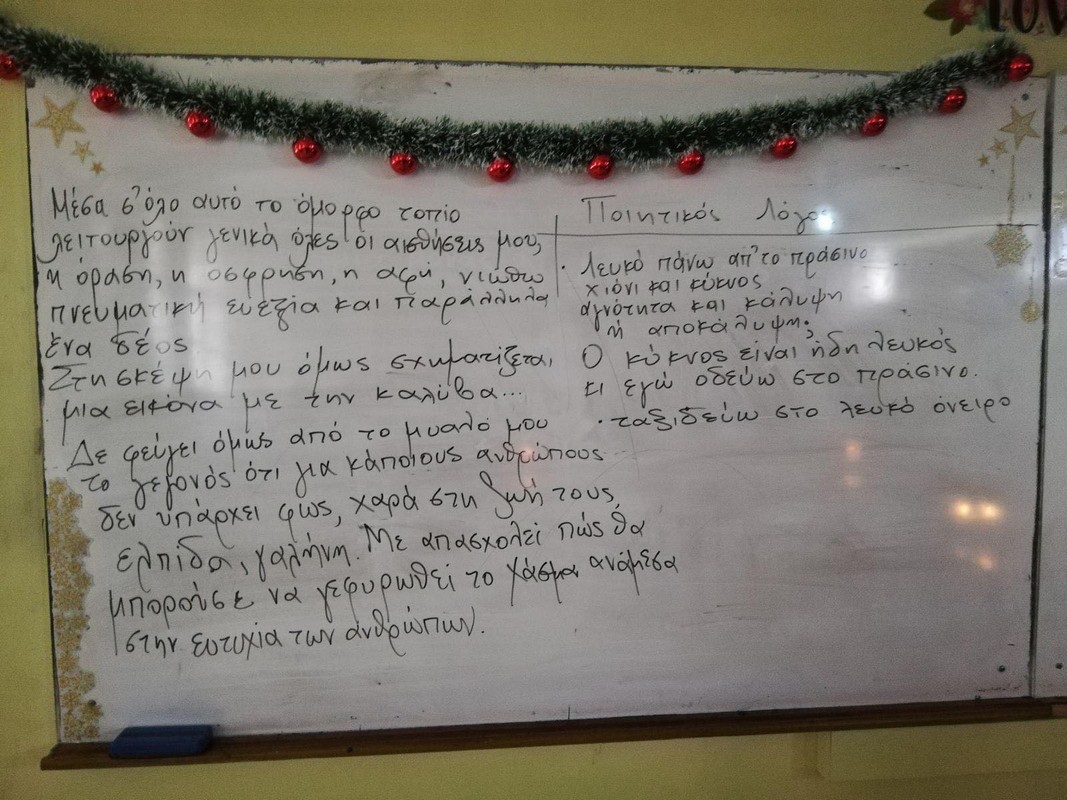 Μέσα σ'όλο αυτό το όμορφο τοπίο
λειτουργούν γενικά όλες οι αισθήσεις μου,
η όραση, η οσφρηση, η αφή, νιώθω
πνευματική ευεξία και παράλληλα
ένα δέος.
Στη σκέψη μου όμως σχηματίζεται
μια εικόνα με την καλύβα...
Δε φεύγει όμως από το μυαλό μου
το γεγονός ότι για κάποιους ανθρώπους
δεν υπάρχει φως, χαρά στη ζωή τους,
ελπίδα, γαλήνη. Με απασχολεί πώς θα
μπορούσε να γεφυρωθεί το χάσμα ανάμεσα
στην ευτυχία των ανθρώπων.
Ποιητικός Λόγος
· Λευκό πάνω απ'το πράσινο
χιόνι και κύκνος
αγνότητα και κάλυψη
ή αποκάλυψη;
Ο κύκνος είναι ήδη λευκός
κι εγώ οδεύω στο πράσινο.
· ταξιδεύω στο λευκό όνειρο